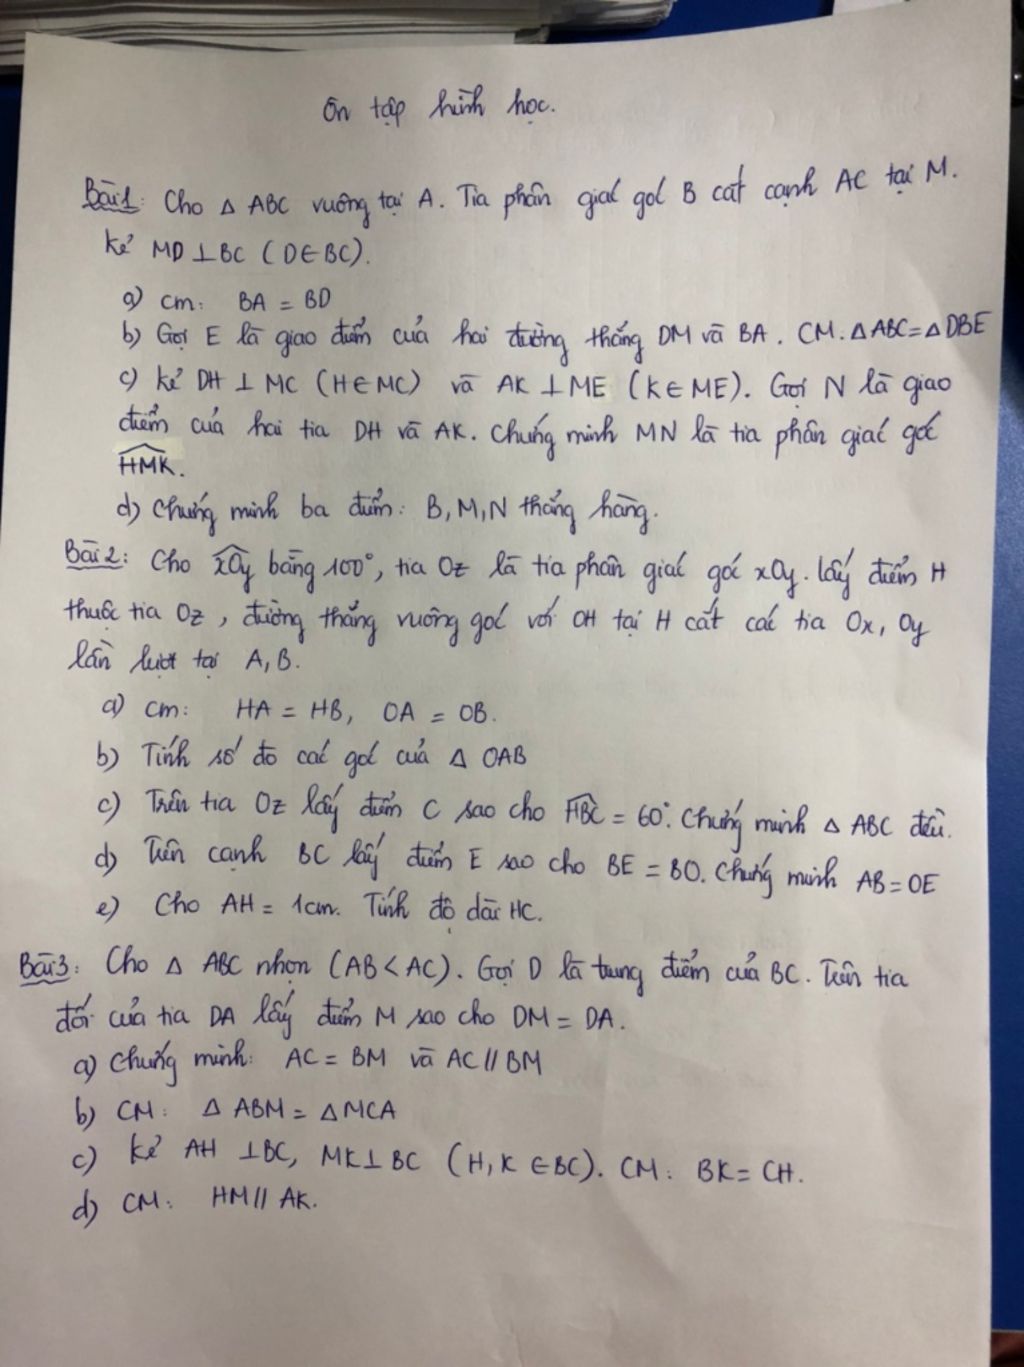 Ôn tập hình học.
Bài 1: Cho △ ABC vuông tại A. Tia phân giác góc B cắt cạnh AC tại M.
kẻ MD ⊥ BC (D ∈ BC).
a) cm: BA = BD
b) Gọi E là giao điểm của hai đường thẳng DM và BA. CM: △ABC = △DBE
c) kẻ DH ⊥ MC (H ∈ MC) và AK ⊥ ME (K ∈ ME). Gọi N là giao
điểm của hai tia DH và AK. Chứng minh MN là tia phân giác góc
\widehat{HMK}.
d) Chứng minh ba điểm: B, M, N thẳng hàng.
Bài 2: Cho \widehat{xOy} bằng 100°, tia Oz là tia phân giác góc xOy. lấy điểm H
thuộc tia Oz, đường thẳng vuông góc với OH tại H cắt các tia Ox, Oy
lần lượt tại A, B.
a) cm: HA = HB, OA = OB.
b) Tính số đo các góc của △ OAB
c) Trên tia Oz lấy điểm C sao cho \widehat{HBC} = 60°. Chứng minh △ ABC đều.
d) Trên cạnh BC lấy điểm E sao cho BE = BO. Chứng minh AB = OE
e) Cho AH = 1cm. Tính độ dài HC.
Bài 3: Cho △ ABC nhọn (AB < AC). Gọi D là trung điểm của BC. Trên tia
đối của tia DA lấy điểm M sao cho DM = DA.
a) Chứng minh: AC = BM và AC // BM
b) CM: △ ABM = △ MCA
c) kẻ AH ⊥ BC, MK ⊥ BC (H, K ∈ BC). CM: BK = CH.
d) CM: HM // AK.